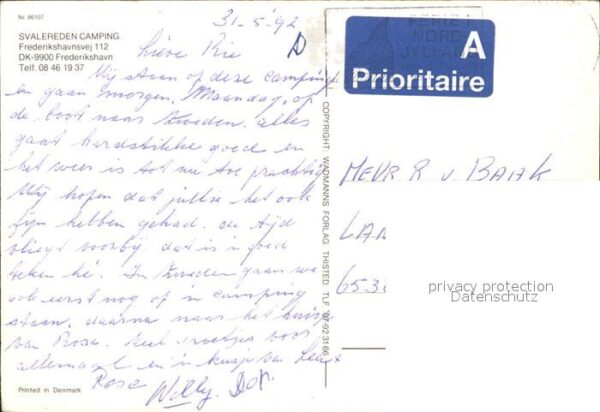 Nr. 86107
SVALEREDEN CAMPING
Frederikshavnsvej 112
DK-9900 Frederikshavn
Telf. 08 46 19 37
31-5-'92
Lieve Rie
Wij staan op deze camping
en gaan morgen, Maandag, op
de boot naar Zweden. alles
gaat hardstikke goed en
het weer is tot nu toe prachtig
Wij hopen dat jullie het ook
fijn hebben gehad. de tijd
vliegt voorbij dat is 'n goed
teken hé. In Zweden gaan we
ook eerst nog op 'n camping
staan, daarna naar het huisje
van Rose. Veel groetjes voor
allemaal en 'n kusje van
Rose Willy
Printed in Denmark
COPYRIGHT: WADMANNS FORLAG THISTED. TLF. 07-92 31 66
NORD
JYLLAND
A
Prioritaire
MEVR R v. BAAK
LAN
653
privacy protection
Datenschutz